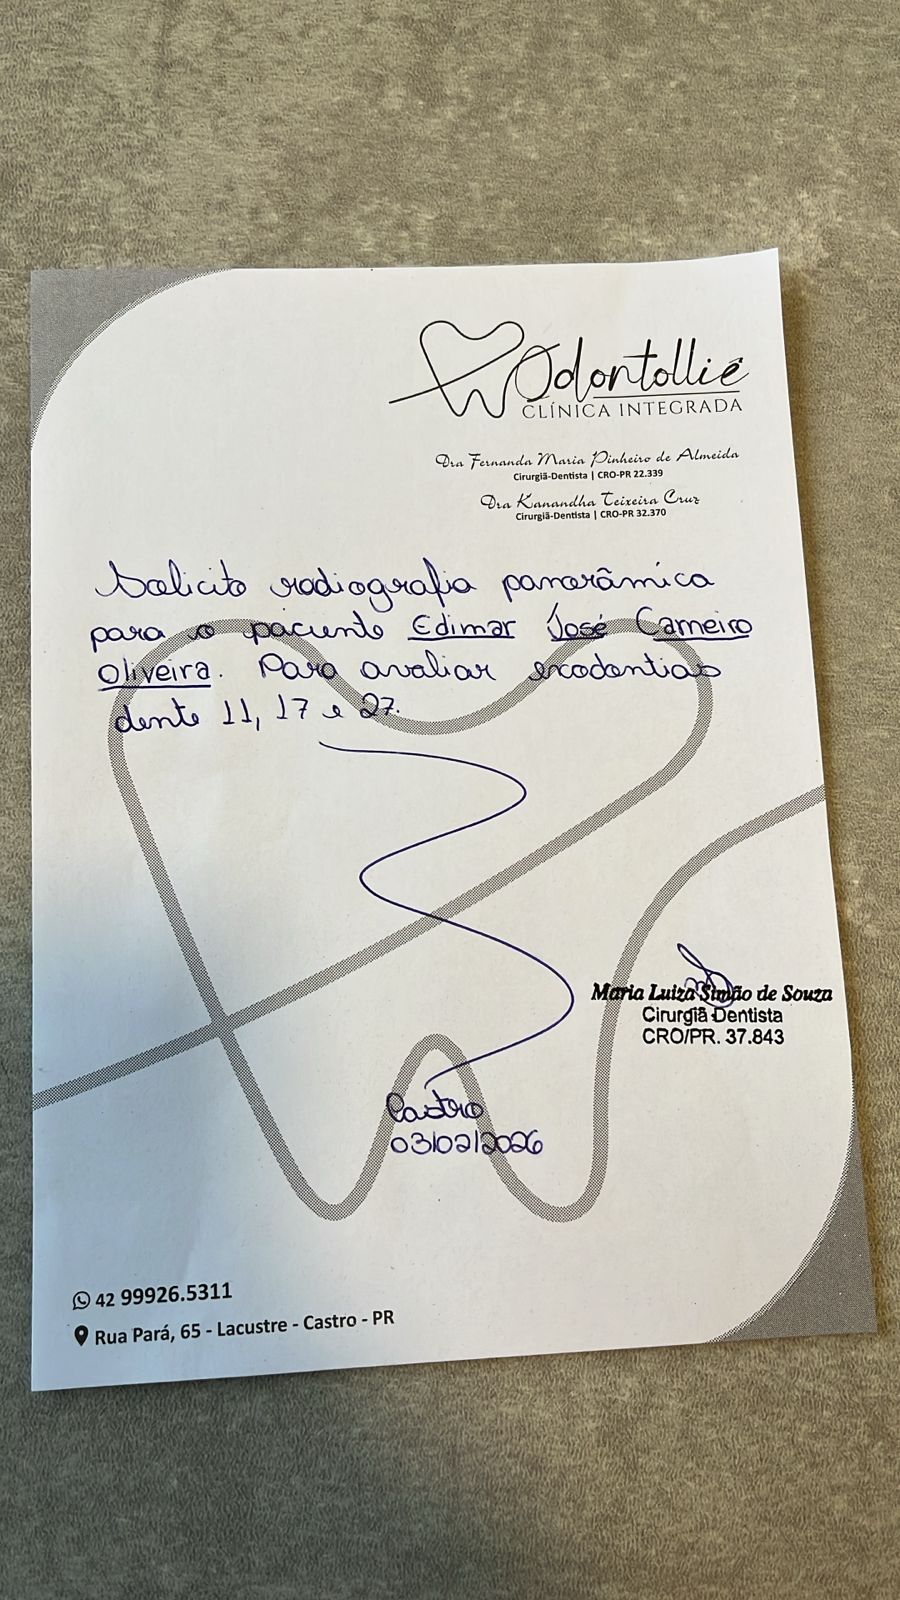 Odontolliê
CLÍNICA INTEGRADA
Dra Fernanda Maria Pinheiro de Almeida
Cirurgiã-Dentista | CRO-PR 22.339
Dra Kanandha Teixeira Cruz
Cirurgiã-Dentista | CRO-PR 32.370
Solicito radiografia panorâmica
para o paciente Edimar José Carneiro
Oliveira. Para avaliar exodontias
dente 11, 17 e 27.
Maria Luiza Simão de Souza
Cirurgiã Dentista
CRO/PR. 37.843
Castro
03/02/2026
42 99926.5311
Rua Pará, 65 - Lacustre - Castro - PR